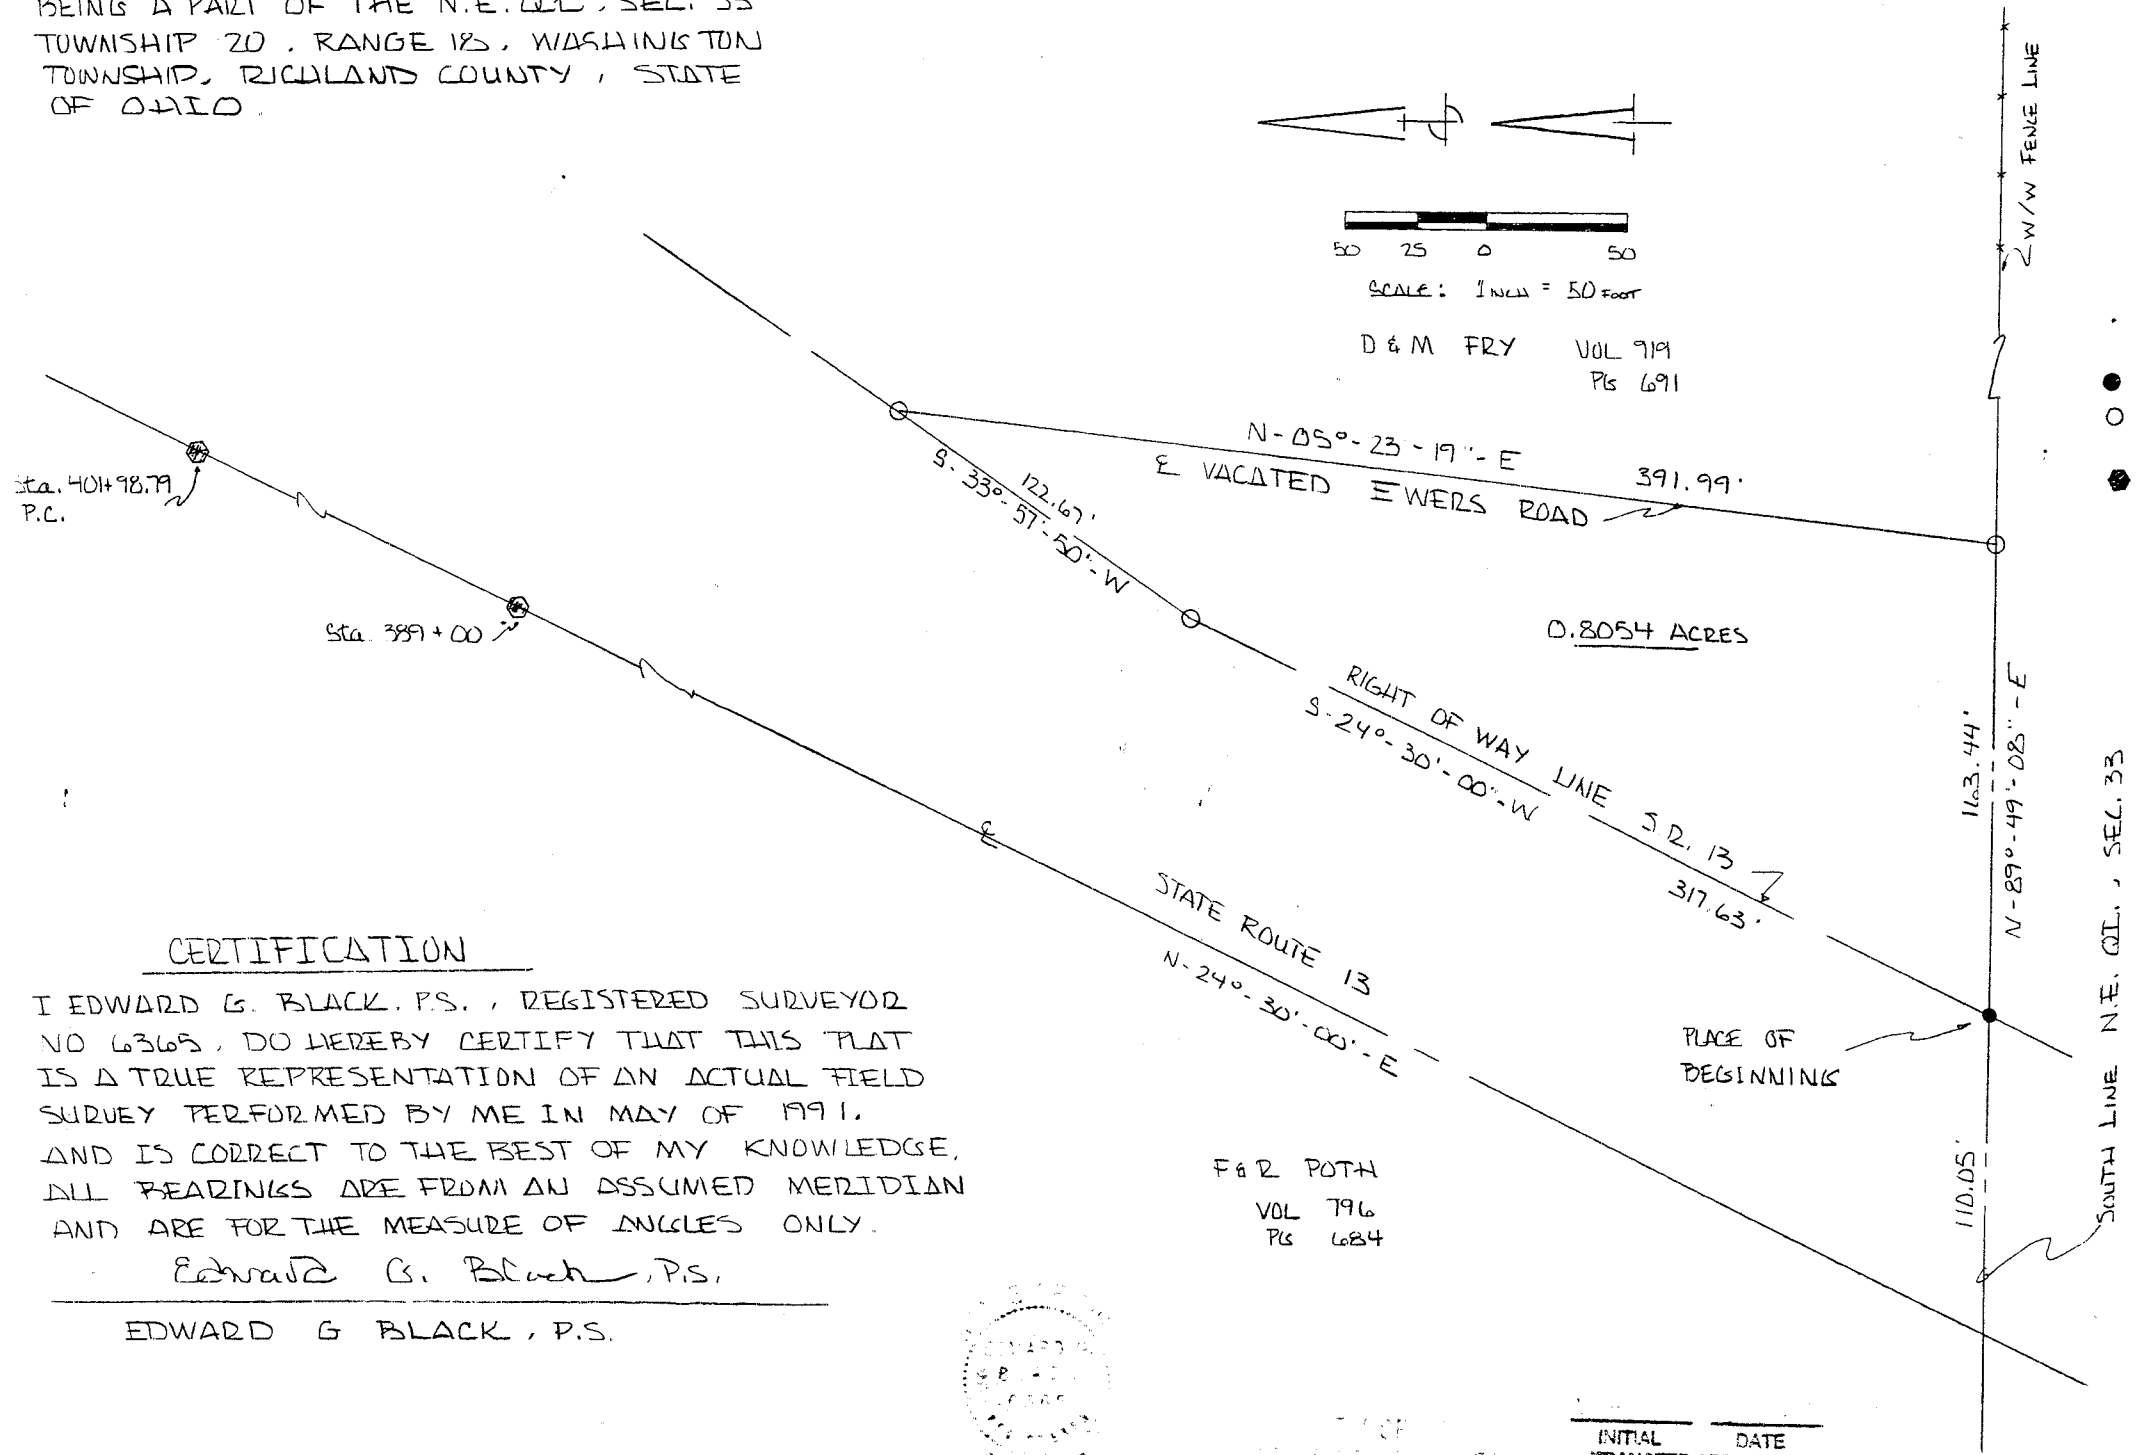 BEING A PART OF THE N.E. QT., SEC. 33
TOWNSHIP 20, RANGE 18, WASHINGTON
TOWNSHIP, RICHLAND COUNTY, STATE
OF OHIO.
W/W FENCE LINE
50 25 0 50
SCALE: 1 INCH = 50 FOOT
D & M FRY VOL 919
PG 691
N-05°-23'-19"-E
391.99'
℄ VACATED EWERS ROAD
122.67'
S-33°-57'-50"-W
Sta. 401+98.79
P.C.
Sta. 389+00
0.8054 ACRES
RIGHT OF WAY LINE S.R. 13
S-24°-30'-00"-W
317.63'
163.44'
N-89°-49'-08"-E
SOUTH LINE N.E. QT., SEC. 33
℄
STATE ROUTE 13
N-24°-30'-00"-E
PLACE OF
BEGINNING
110.05'
F & R POTH
VOL 796
PG 684
CERTIFICATION
I EDWARD G. BLACK, P.S., REGISTERED SURVEYOR
NO 6365, DO HEREBY CERTIFY THAT THIS PLAT
IS A TRUE REPRESENTATION OF AN ACTUAL FIELD
SURVEY PERFORMED BY ME IN MAY OF 1991.
AND IS CORRECT TO THE BEST OF MY KNOWLEDGE.
ALL BEARINGS ARE FROM AN ASSUMED MERIDIAN
AND ARE FOR THE MEASURE OF ANGLES ONLY.
Edward G. Black, P.S.
EDWARD G BLACK, P.S.
INITIAL DATE